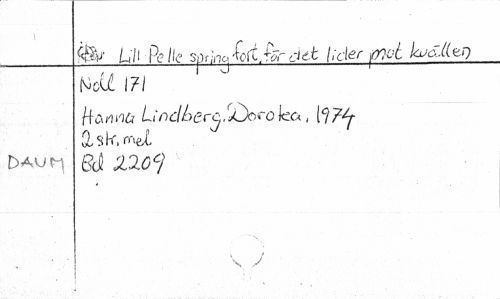 Lill Pelle spring fort, för det lider mot kvällen
Noll 171
Hanna Lindberg, Dorotea, 1974
2 str, mel
DAUM Bd 2209